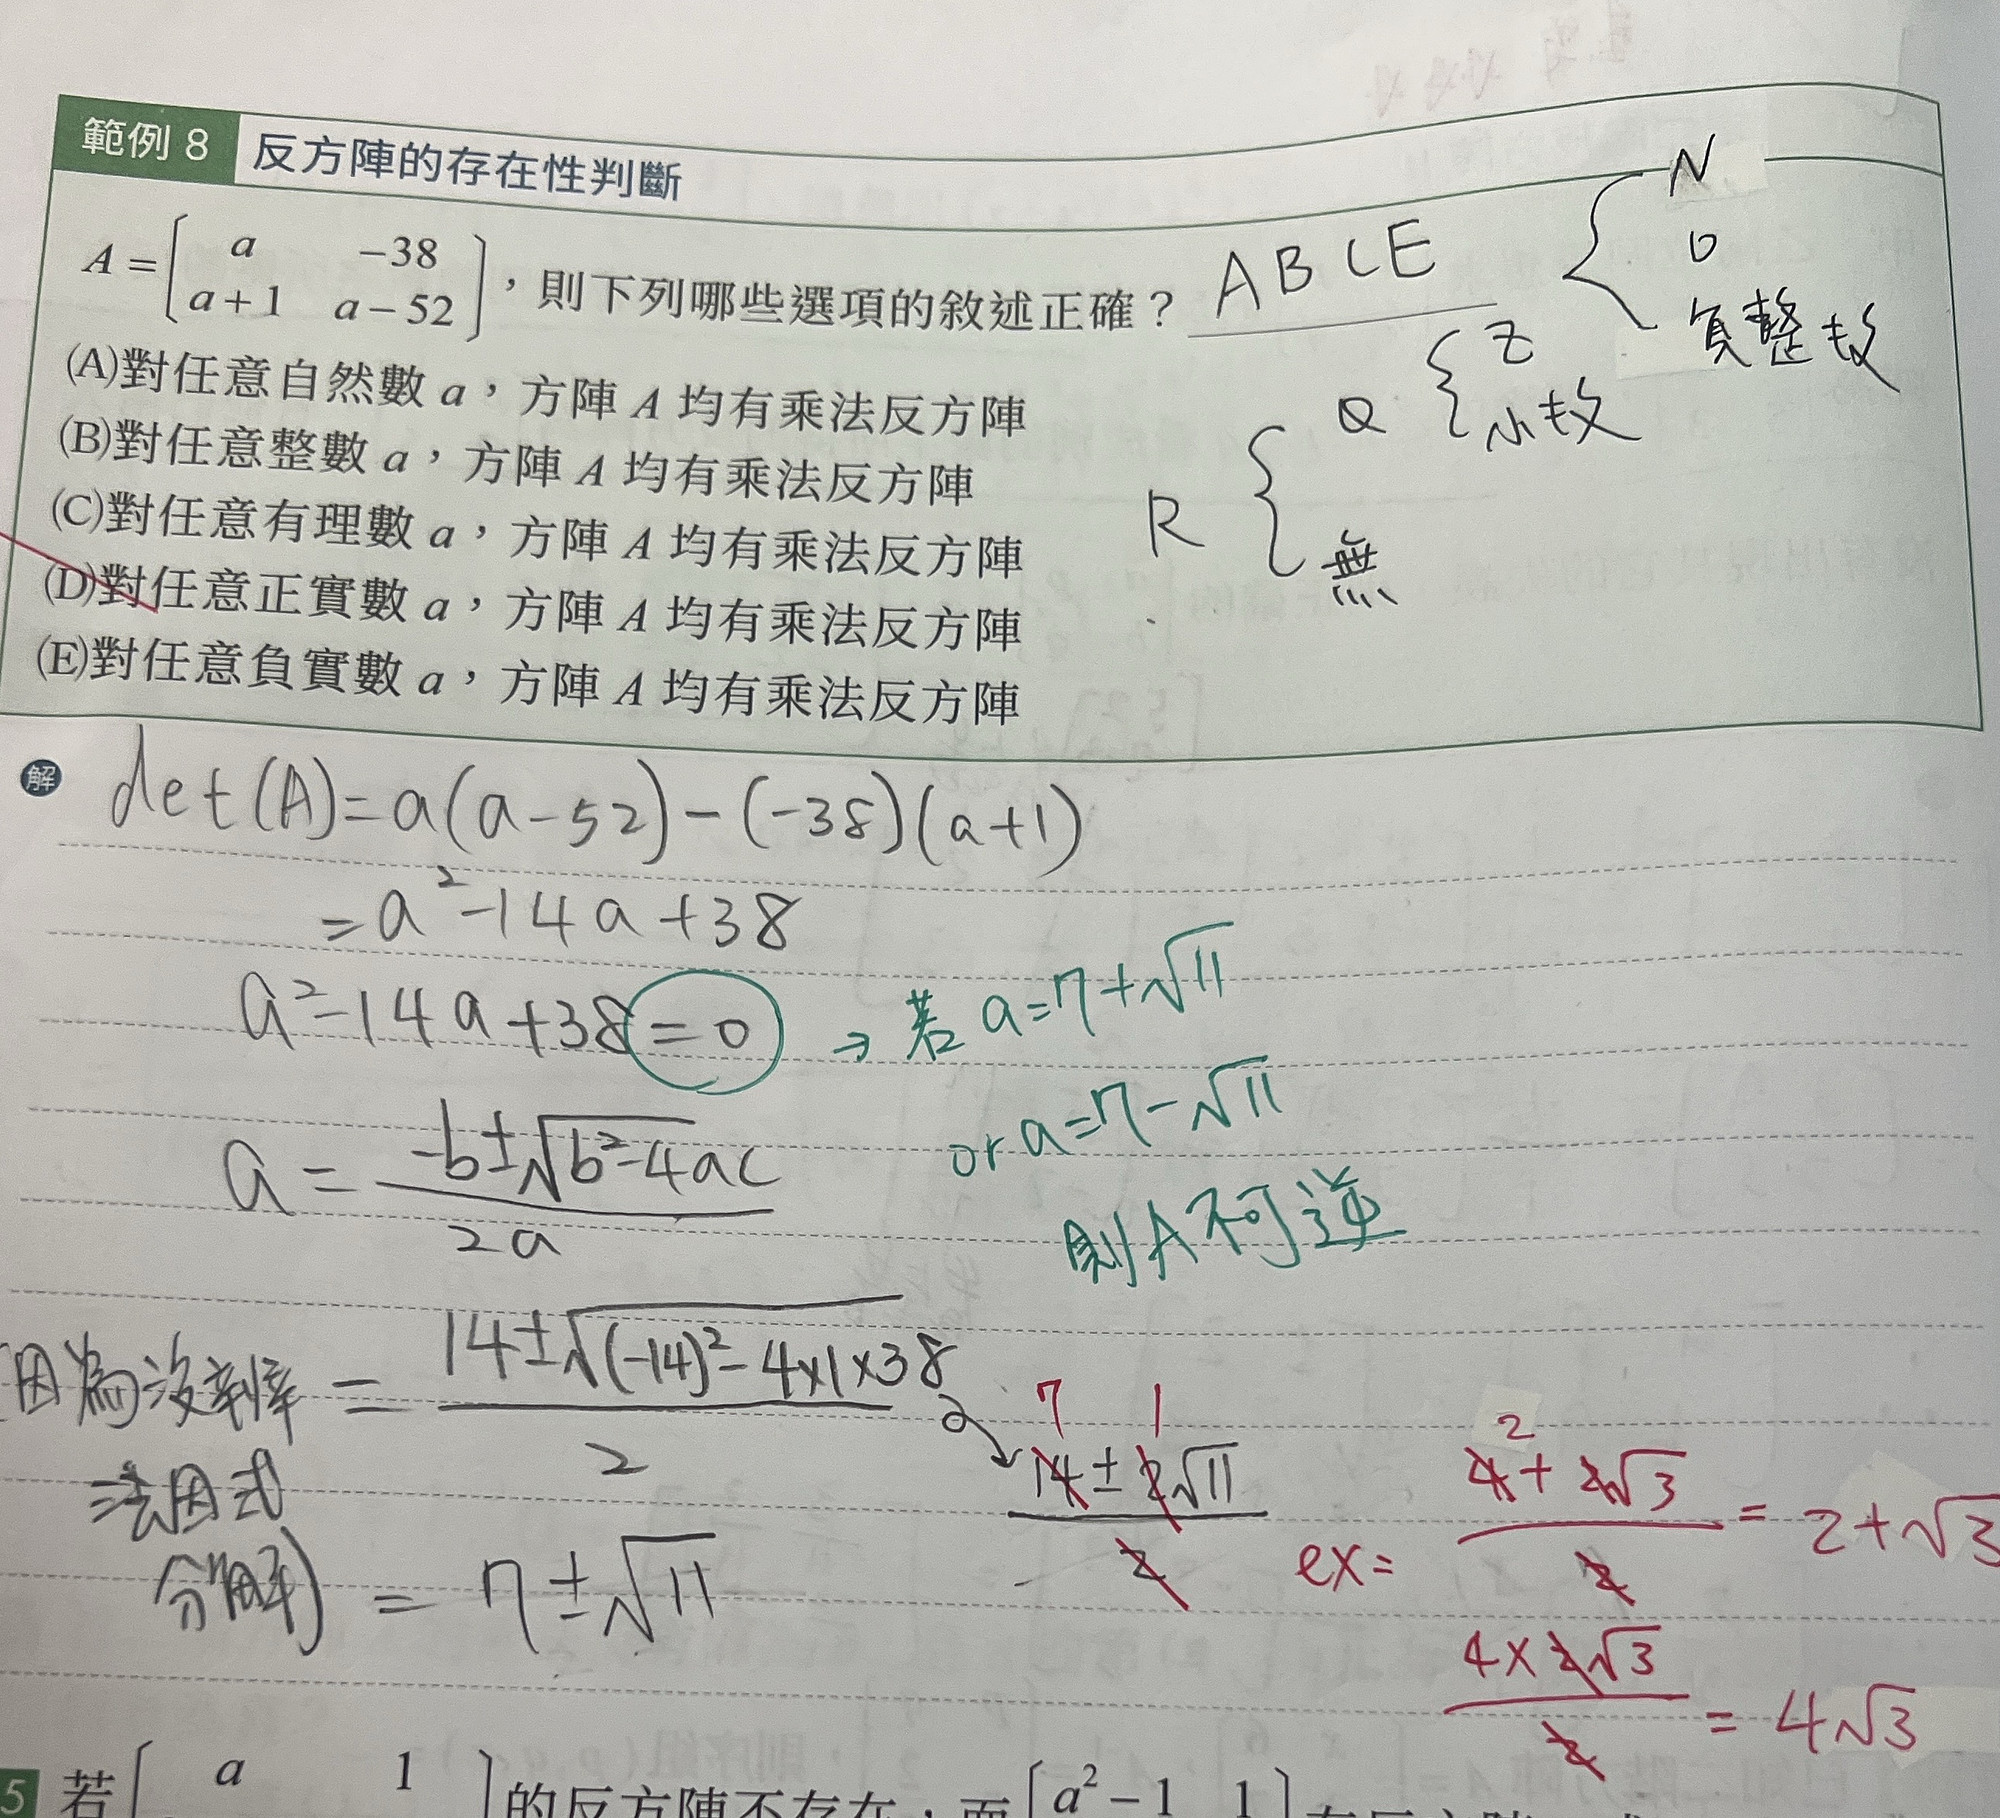 範例 8 反方陣的存在性判斷
A = [ a -38
a+1 a-52 ],則下列哪些選項的敘述正確? ABCE
(A)對任意自然數 a,方陣 A 均有乘法反方陣
(B)對任意整數 a,方陣 A 均有乘法反方陣
(C)對任意有理數 a,方陣 A 均有乘法反方陣
(D)對任意正實數 a,方陣 A 均有乘法反方陣
(E)對任意負實數 a,方陣 A 均有乘法反方陣
R { Q { Z { N
0
負整数
小数
無
解 det(A)=a(a-52)-(-38)(a+1)
=a²-14a+38
a²-14a+38=0 → 若 a=7+√11
or a=7-√11
則A不可逆
a = (-b±√(b²-4ac))/(2a)
= (14±√((-14)²-4×1×38))/2
(14±2√11)/2
7 1
因為沒辦
法因式
分解)
= 7±√11
ex= (4+2√3)/2 = 2+√3
2
(4×2√3)/2 = 4√3
5 若 [ a 1 ] 的反方陣不存在,而 [ a²-1 1 ]